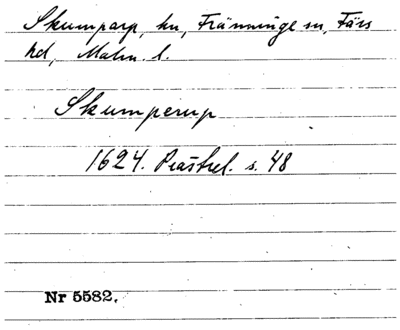 Skumparp, hn, Fränninge sn, Färs
hd, Malm. l.
Skumperup
1624. Prästrel. s. 48
Nr 5582.